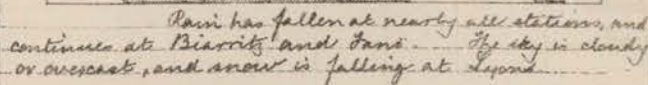 Rain has fallen at nearly all stations, and
continues at Biarritz and . The sky is cloudy
or overcast, and snow is falling at Lyons